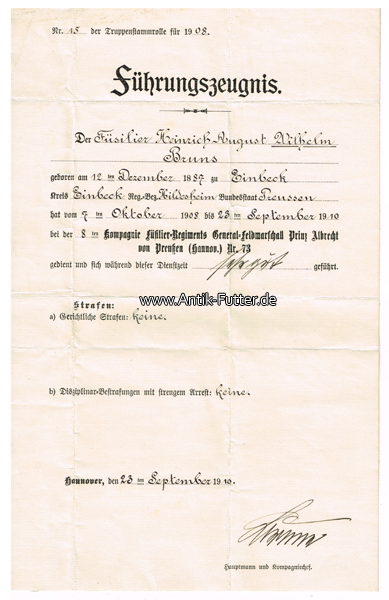 Nr. 15 der Truppenstammrolle für 1908.
Führungszeugnis.
Der Füsilier Heinrich August Wilhelm
Bruns
geboren am 12 ten Dezember 1887 zu Einbeck
Kreis Einbeck Reg-Bez. Hildesheim Bundesstaat Preussen
hat vom 7 ten Oktober 1908 bis 23 ten September 1910
bei der 8 ten Kompagnie Füsilier-Regiments General-Feldmarschall Prinz Albrecht
von Preußen (Hannov.) Nr. 73
gedient und sich während dieser Dienstzeit sehr gut geführt.
www.Antik-Futter.de
Strafen:
a) Gerichtliche Strafen: keine.
b) Disziplinar-Bestrafungen mit strengem Arrest: keine.
Hannover, den 23 ten September 1910.
Hauptmann und Kompagniechef.